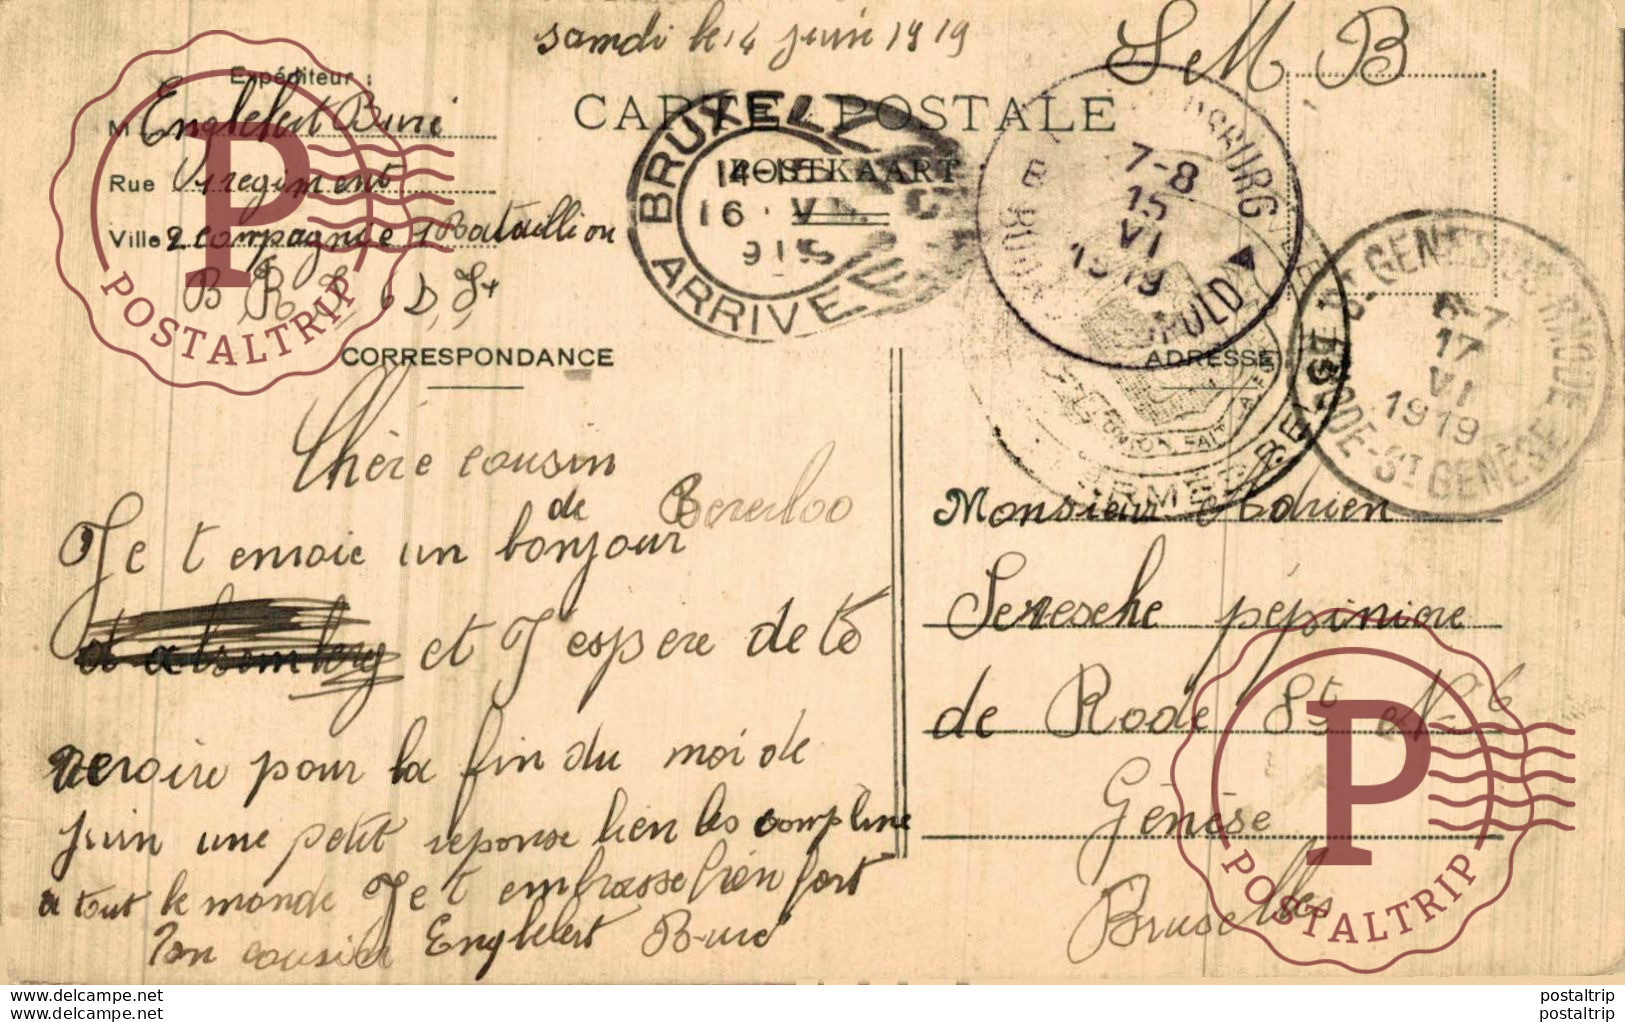 samdi le 14 juin 1919
S M B
Expéditeur :
M Englebert Buré
Rue régiment
Ville 2 compagnie 1 Bataillion
B
CARTE POSTALE
POSTKAART
BRUXELL
14-15
16 VI
ARRIVE
7-8
15
VI
1919
ST GENESIUS-RHODE
6-7
17
VI
1919
RHODE-ST GENÈSE
UNION FAIT LA
CORRESPONDANCE
ADRESSE
Chère cousin
de Beverloo
Je t envoie un bonjour
et J espere de te
veroire pour la fin du moi de
juin une petit reponse bien les complime
a tout le monde Je t embrasse bien fort
Ton cousin Englebert Buré
Monsieur Adrien
Sereseke pépiniere
de Rode St
Génèse
Bruselles
P
POSTALTRIP
P
POSTALTRIP
www.delcampe.net postaltrip
www.delcampe.net postaltrip